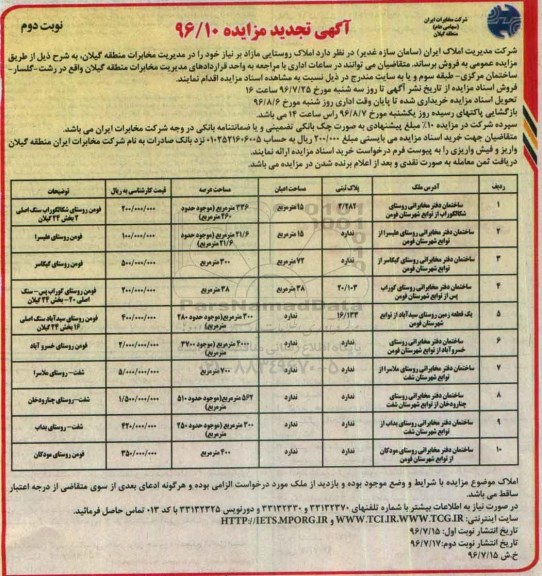 شرکت مخابرات ایران
(سهامی عام)
منطقه گیلان
آگهی تجدید مزایده ۹۶/۱۰
نوبت دوم
شرکت مدیریت املاک ایران (سامان سازه غدیر) در نظر دارد املاک روستایی مازاد بر نیاز خود را در مدیریت مخابرات منطقه گیلان، به شرح ذیل از طریق
مزایده عمومی به فروش برساند. متقاضیان می توانند در ساعات اداری با مراجعه به واحد قراردادهای مدیریت مخابرات منطقه گیلان واقع در رشت-گلسار-
ساختمان مرکزی- طبقه سوم و یا به سایت مندرج در ذیل نسبت به مشاهده اسناد مزایده اقدام نمایند.
فروش اسناد مزایده از تاریخ نشر آگهی تا روز سه شنبه مورخ ۹۶/۷/۲۵ ساعت ۱۶
تحویل اسناد مزایده خریداری شده تا پایان وقت اداری روز شنبه مورخ ۹۶/۸/۶
بازگشایی پاکتهای رسیده روز یکشنبه مورخ ۹۶/۸/۷ راس ساعت ۱۴ می باشد.
سپرده شرکت در مزایده ۱۰٪ مبلغ پیشنهادی به صورت چک بانکی تضمینی و یا ضمانتنامه بانکی در وجه شرکت مخابرات ایران می باشد.
متقاضیان جهت خرید اسناد مزایده می بایستی مبلغ ۲۰۰/۰۰۰ ریال به حساب ۰۱۰۲۵۳۱۶۰۶۰۰۵ نزد بانک صادرات به نام شرکت مخابرات ایران منطقه گیلان
واریز و فیش واریزی را به پیوست فرم درخواست خرید اسناد مزایده ارائه نمایند.
دریافت ثمن معامله به صورت نقدی و بعد از اعلام برنده شدن در مزایده می باشد.
ردیف آدرس ملک پلاک ثبتی مساحت اعیان مساحت عرصه قیمت کارشناسی به ریال توضیحات
۱ ساختمان دفتر مخابراتی روستای شکالگوراب از توابع شهرستان فومن ۲/۲۸۲ ۱۵ مترمربع ۲۳۶ مترمربع (موجود حدود ۲۶۰ مترمربع) ۲۰۰/۰۰۰/۰۰۰ فومن روستای شکالگوراب سنگ اصلی ۲ بخش ۲۴ گیلان
۲ ساختمان دفتر مخابراتی روستای ملیسرا از توابع شهرستان فومن ندارد ۱۵ مترمربع ۲۱/۶ مترمربع (موجود حدود ۲۱/۶ مترمربع) ۱۰۰/۰۰۰/۰۰۰ فومن روستای ملیسرا
۳ ساختمان دفتر مخابراتی روستای گیگاسر از توابع شهرستان فومن ندارد ۷۲ مترمربع ۳۰۰ مترمربع ۵۰۰/۰۰۰/۰۰۰ فومن روستای گیگاسر
۴ ساختمان دفتر مخابراتی روستای گوراب پس از توابع شهرستان فومن ۲۰/۱۰۳ ۳۸ مترمربع ۳۸ مترمربع ۲۰۰/۰۰۰/۰۰۰ فومن روستای گوراب پس- سنگ اصلی ۲۰- بخش ۲۴ گیلان
۵ یک قطعه زمین روستای سیدآباد از توابع شهرستان فومن ۱۶/۱۳۳ ندارد ۳۰۰ مترمربع (موجود حدود ۲۸۰ مترمربع) ۴۰۰/۰۰۰/۰۰۰ فومن روستای سیدآباد سنگ اصلی ۱۶ بخش ۲۴ گیلان
۶ ساختمان دفتر مخابراتی روستای خسروآباد از توابع شهرستان فومن ندارد ندارد ۴۰۰۰ مترمربع (موجود حدود ۳۷۰۰ مترمربع) ۲/۰۰۰/۰۰۰/۰۰۰ فومن روستای خسرو آباد
۷ ساختمان دفتر مخابراتی روستای ملاسرا از توابع شهرستان شفت ندارد ندارد ۷۰۰ مترمربع ۵/۰۰۰/۰۰۰/۰۰۰ شفت- روستای ملاسرا
۸ ساختمان دفتر مخابراتی روستای چنارودخان از توابع شهرستان شفت ندارد ندارد ۵۶۲ مترمربع (موجود حدود ۵۱۰ مترمربع) ۱/۵۰۰/۰۰۰/۰۰۰ شفت- روستای چنارودخان
۹ ساختمان دفتر مخابراتی روستای بداب از توابع شهرستان شفت ندارد ندارد ۳۰۰ مترمربع (موجود حدود ۲۵۰ مترمربع) ۴۲۰/۰۰۰/۰۰۰ شفت- روستای بداب
۱۰ ساختمان دفتر مخابراتی روستای مودگان از توابع شهرستان فومن ندارد ندارد ۴۰۰ مترمربع ۳۵۰/۰۰۰/۰۰۰ فومن روستای مودگان
املاک موضوع مزایده با شرایط و وضع موجود بوده و بازدید از ملک مورد درخواست الزامی بوده و هرگونه ادعای بعدی از سوی متقاضی از درجه اعتبار
ساقط می باشد.
در صورت نیاز به اطلاعات بیشتر با شماره تلفنهای ۳۳۱۳۲۳۷۰ و ۳۳۱۳۲۳۳۰ و دورنویس ۳۳۱۳۲۳۲۵ با کد ۰۱۳ تماس حاصل فرمائید.
سایت اینترنتی: WWW.TCI.IR WWW.TCG.IR و HTTP://IETS.MPORG.IR
تاریخ انتشار نوبت اول: ۹۶/۷/۱۵
تاریخ انتشار نوبت دوم: ۹۶/۷/۱۷
خ ش ۹۶/۷/۱۵
ParsNamadData